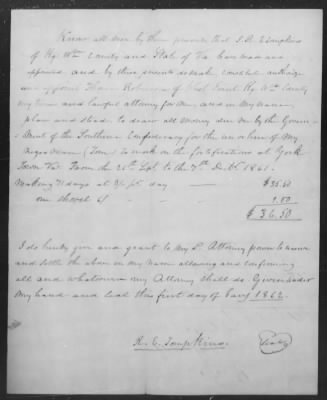 Know all men by these presents that I. H. C. Tompkins
of Kg. Wm County and State of Va have made and
appointed and by these presents do make constitute authorize
and appoint Robinson of West Point Kg Wm County
my true and lawful attorney for me and in my name
place and stead to draw all Money due me by the Govern-
ment of the Southern Confederacy for the services of My
negro man (Tom) to work on the fortifications at York
Town Va. From the to the 7th Dec 1861.
Making 71 days at day — $35.50
one shovel $1 — 1.00
$36.50
I do hereby give and grant to My Sd Attorney power to receive
and settle the above in my name allowing and confirming
all and whatsoever my Attorney shall do. Given under
My hand and seal this first day of Jany 1862.
H. C. Tompkins. Seal